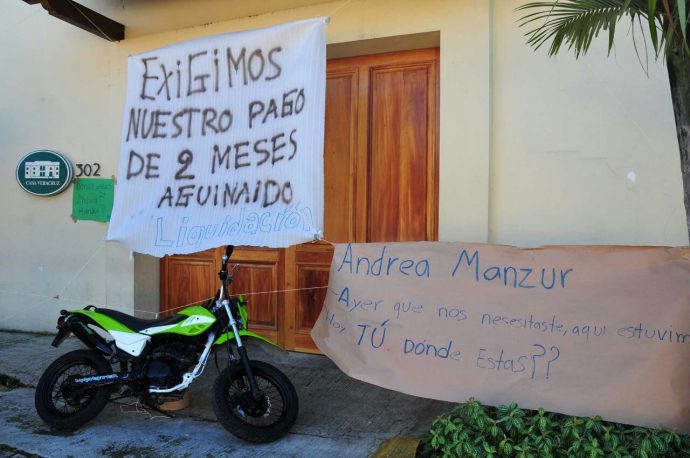 EXIGIMOS
NUESTRO PAGO
DE 2 MESES
AGUINALDO
Liquidación
CASA VERACRUZ
302
Andrea Manzur
Ayer que nos nesesitaste, aqui estuvim
Hoy TÚ. Dónde Estas??